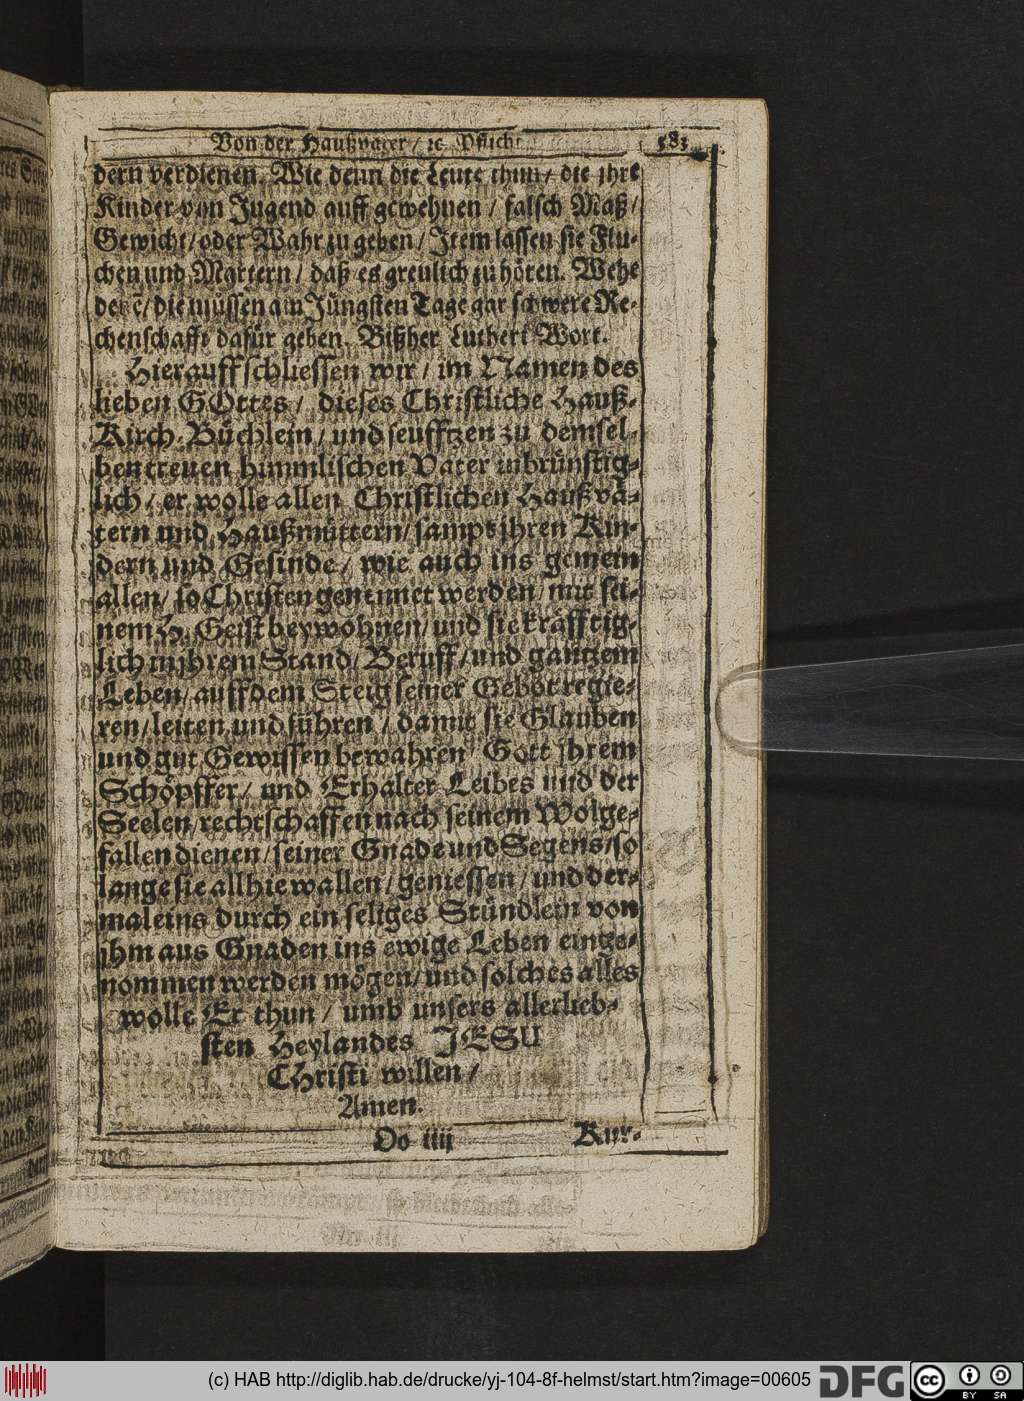 Von der Haußväter / ꝛc. Pflicht. 583
dern verdienen. Wie denn die Leute thun / die jhre
Kinder von Jugend auff gewehnen / falsch Maß /
Gewicht / oder Wahr zu geben / Item lassen sie Flu-
chen und Martern / daß es greulich zu hören. Wehe
denē / die müssen am Jüngsten Tage gar schwere Re-
chenschafft dafür geben. Bißher Lutheri Wort.
Hierauff schliessen wir / im Namen des
lieben GOttes / dieses Christliche Hauß-
Kirch-Büchlein / und seufftzen zu demsel-
ben treuen himmlischen Vater inbrünstig-
lich / er wolle allen Christlichen Haußvä-
tern und Haußmüttern / sampt jhren Kin-
dern und Gesinde / wie auch ins gemein
allen / so Christen genennet werden / mit sei-
nem H. Geist beywohnen / und sie kräfftig-
lich in jhrem Stand / Beruff / und gantzem
Leben / auff dem Steig seiner Gebot regie-
ren / leiten und führen / damit sie Glauben
und gut Gewissen bewahren / Gott jhrem
Schöpffer / und Erhalter Leibes und der
Seelen / rechtschaffen nach seinem Wolge-
fallen dienen / seiner Gnade und Segens / so
lange sie allhie wallen / geniessen / und der-
maleins durch ein seliges Stündlein von
jhm aus Gnaden ins ewige Leben einge-
nommen werden mögen / und solches alles
wolle Er thun / umb unsers allerlieb-
sten Heylandes JESU
Christi willen /
Amen.
Oo iiij Kur-
(c) HAB http://diglib.hab.de/drucke/yj-104-8f-helmst/start.htm?image=00605 DFG cc BY SA